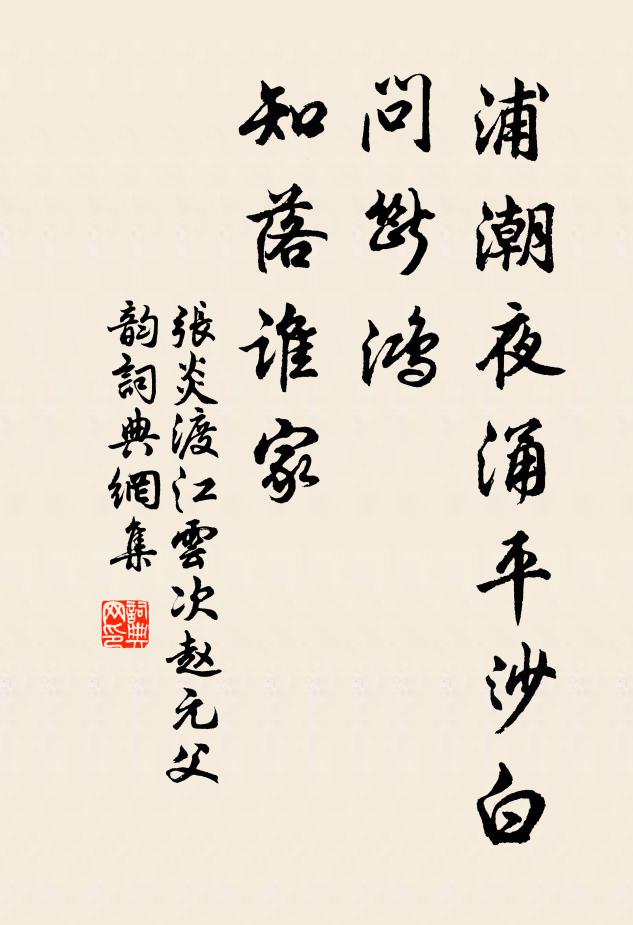 浦潮夜涌平沙白
問斷鴻
知落誰家
張炎渡江雲次赵元父
韵詞典網集
詞典网印